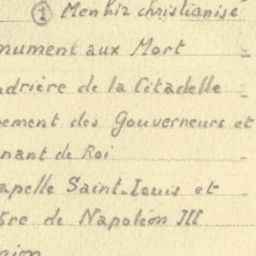 ① Menhir christianisé
nument aux Mort
udrière de la Citadelle
ement des Gouverneurs et
nant de Roi
apelle Saint-Louis et
tre de Napoléon III
nion